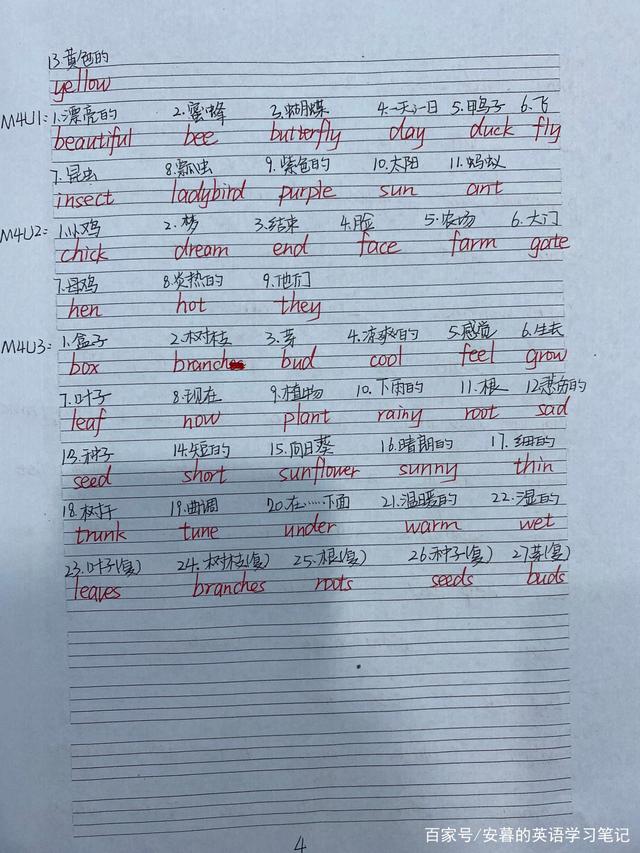 13.黄色的
yellow
M4U1: 1.漂亮的 2.蜜蜂 3.蝴蝶 4.一天;一日 5.鸭子 6.飞
beautiful bee butterfly day duck fly
7.昆虫 8.瓢虫 9.紫色的 10.太阳 11.蚂蚁
insect ladybird purple sun ant
M4U2: 1.小鸡 2.梦 3.结束 4.脸 5.农场 6.大门
chick dream end face farm gate
7.母鸡 8.炎热的 9.他们
hen hot they
M4U3: 1.盒子 2.树枝 3.芽 4.凉爽的 5.感觉 6.生长
box branch bud cool feel grow
7.叶子 8.现在 9.植物 10.下雨的 11.根 12.悲伤的
leaf now plant rainy root sad
13.种子 14.短的 15.向日葵 16.晴朗的 17.细的
seed short sunflower sunny thin
18.树干 19.曲调 20.在……下面 21.温暖的 22.湿的
trunk tune under warm wet
23.叶子(复) 24.树枝(复) 25.根(复) 26.种子(复) 27芽(复)
leaves branches roots seeds buds
4
百家号/安暮的英语学习笔记